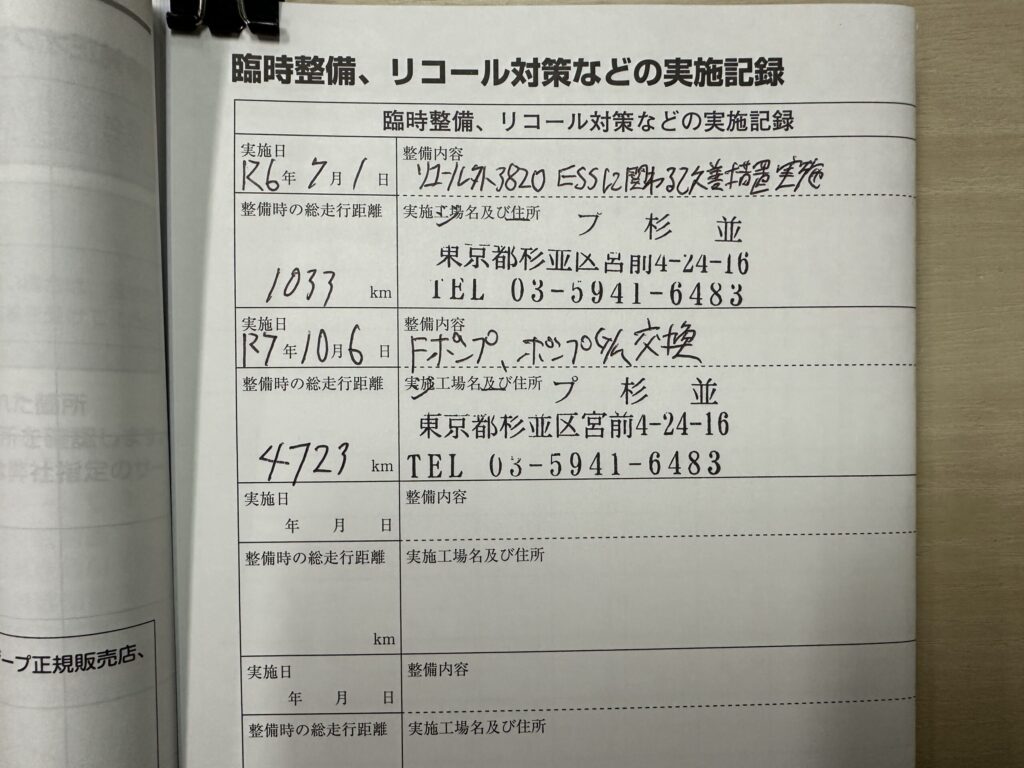 臨時整備、リコール対策などの実施記録
臨時整備、リコール対策などの実施記録
実施日
R6年 7月 1日
整備内容
リコール外3820 ESSに関わる改善措置実施
整備時の総走行距離
1033 km
実施工場名及び住所
プ 杉 並
東京都杉並区宮前4-24-16
TEL 03-5941-6483
実施日
R7年 10月 6日
整備内容
Fポンプ、ポンプ 交換
整備時の総走行距離
4723 km
実施工場名及び住所
プ 杉 並
東京都杉並区宮前4-24-16
TEL 03-5941-6483
実施日
年 月 日
整備内容
整備時の総走行距離
km
実施工場名及び住所
実施日
年 月 日
整備内容
整備時の総走行距離
実施工場名及び住所
れた箇所
所を確認します
弊社指定のサー
ープ正規販売店、